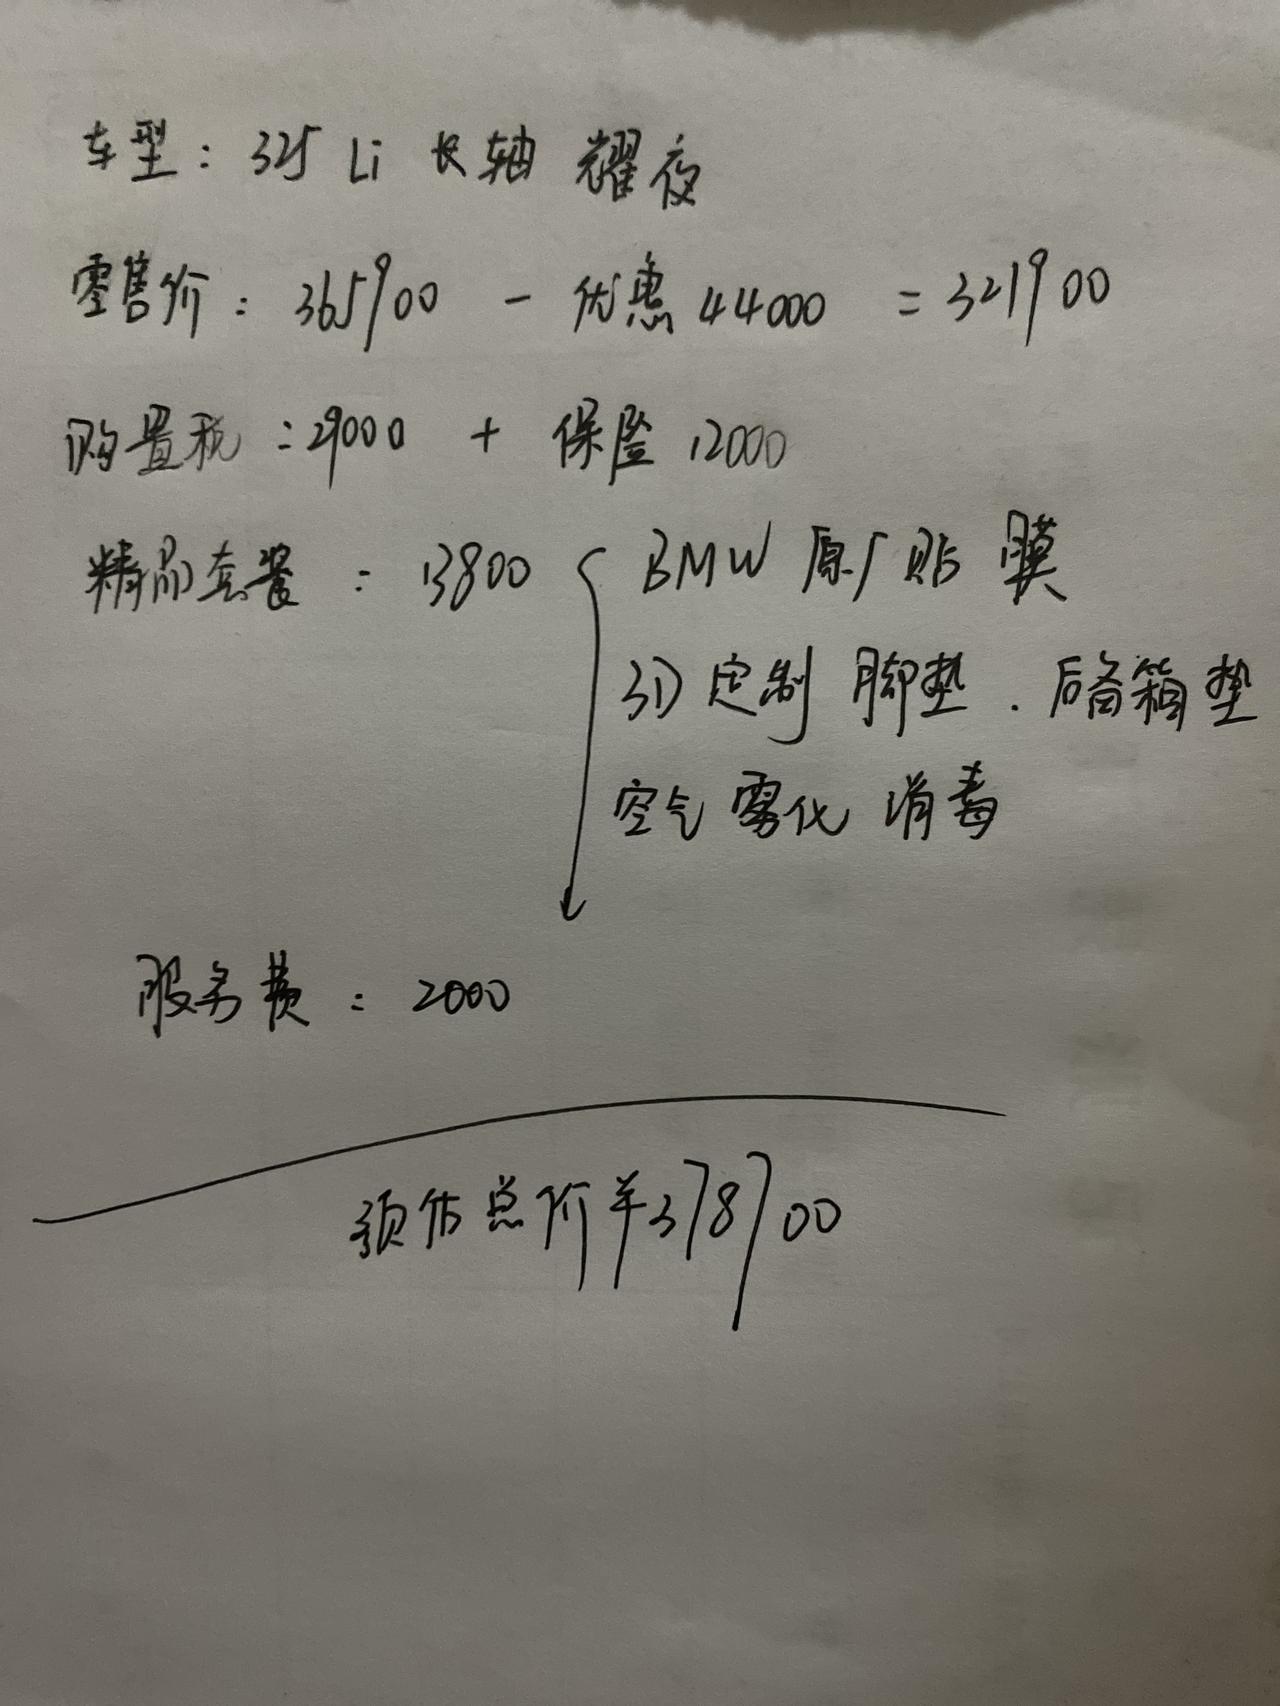 车型：325 Li 长轴 耀夜
零售价：365900 - 优惠 44000 = 321900
购置税：29000 + 保险 12000
精品套餐：13800 BMW 原厂贴膜
3D 定制 脚垫．后备箱垫
空气雾化 消毒
服务费：2000
预估总价￥378700